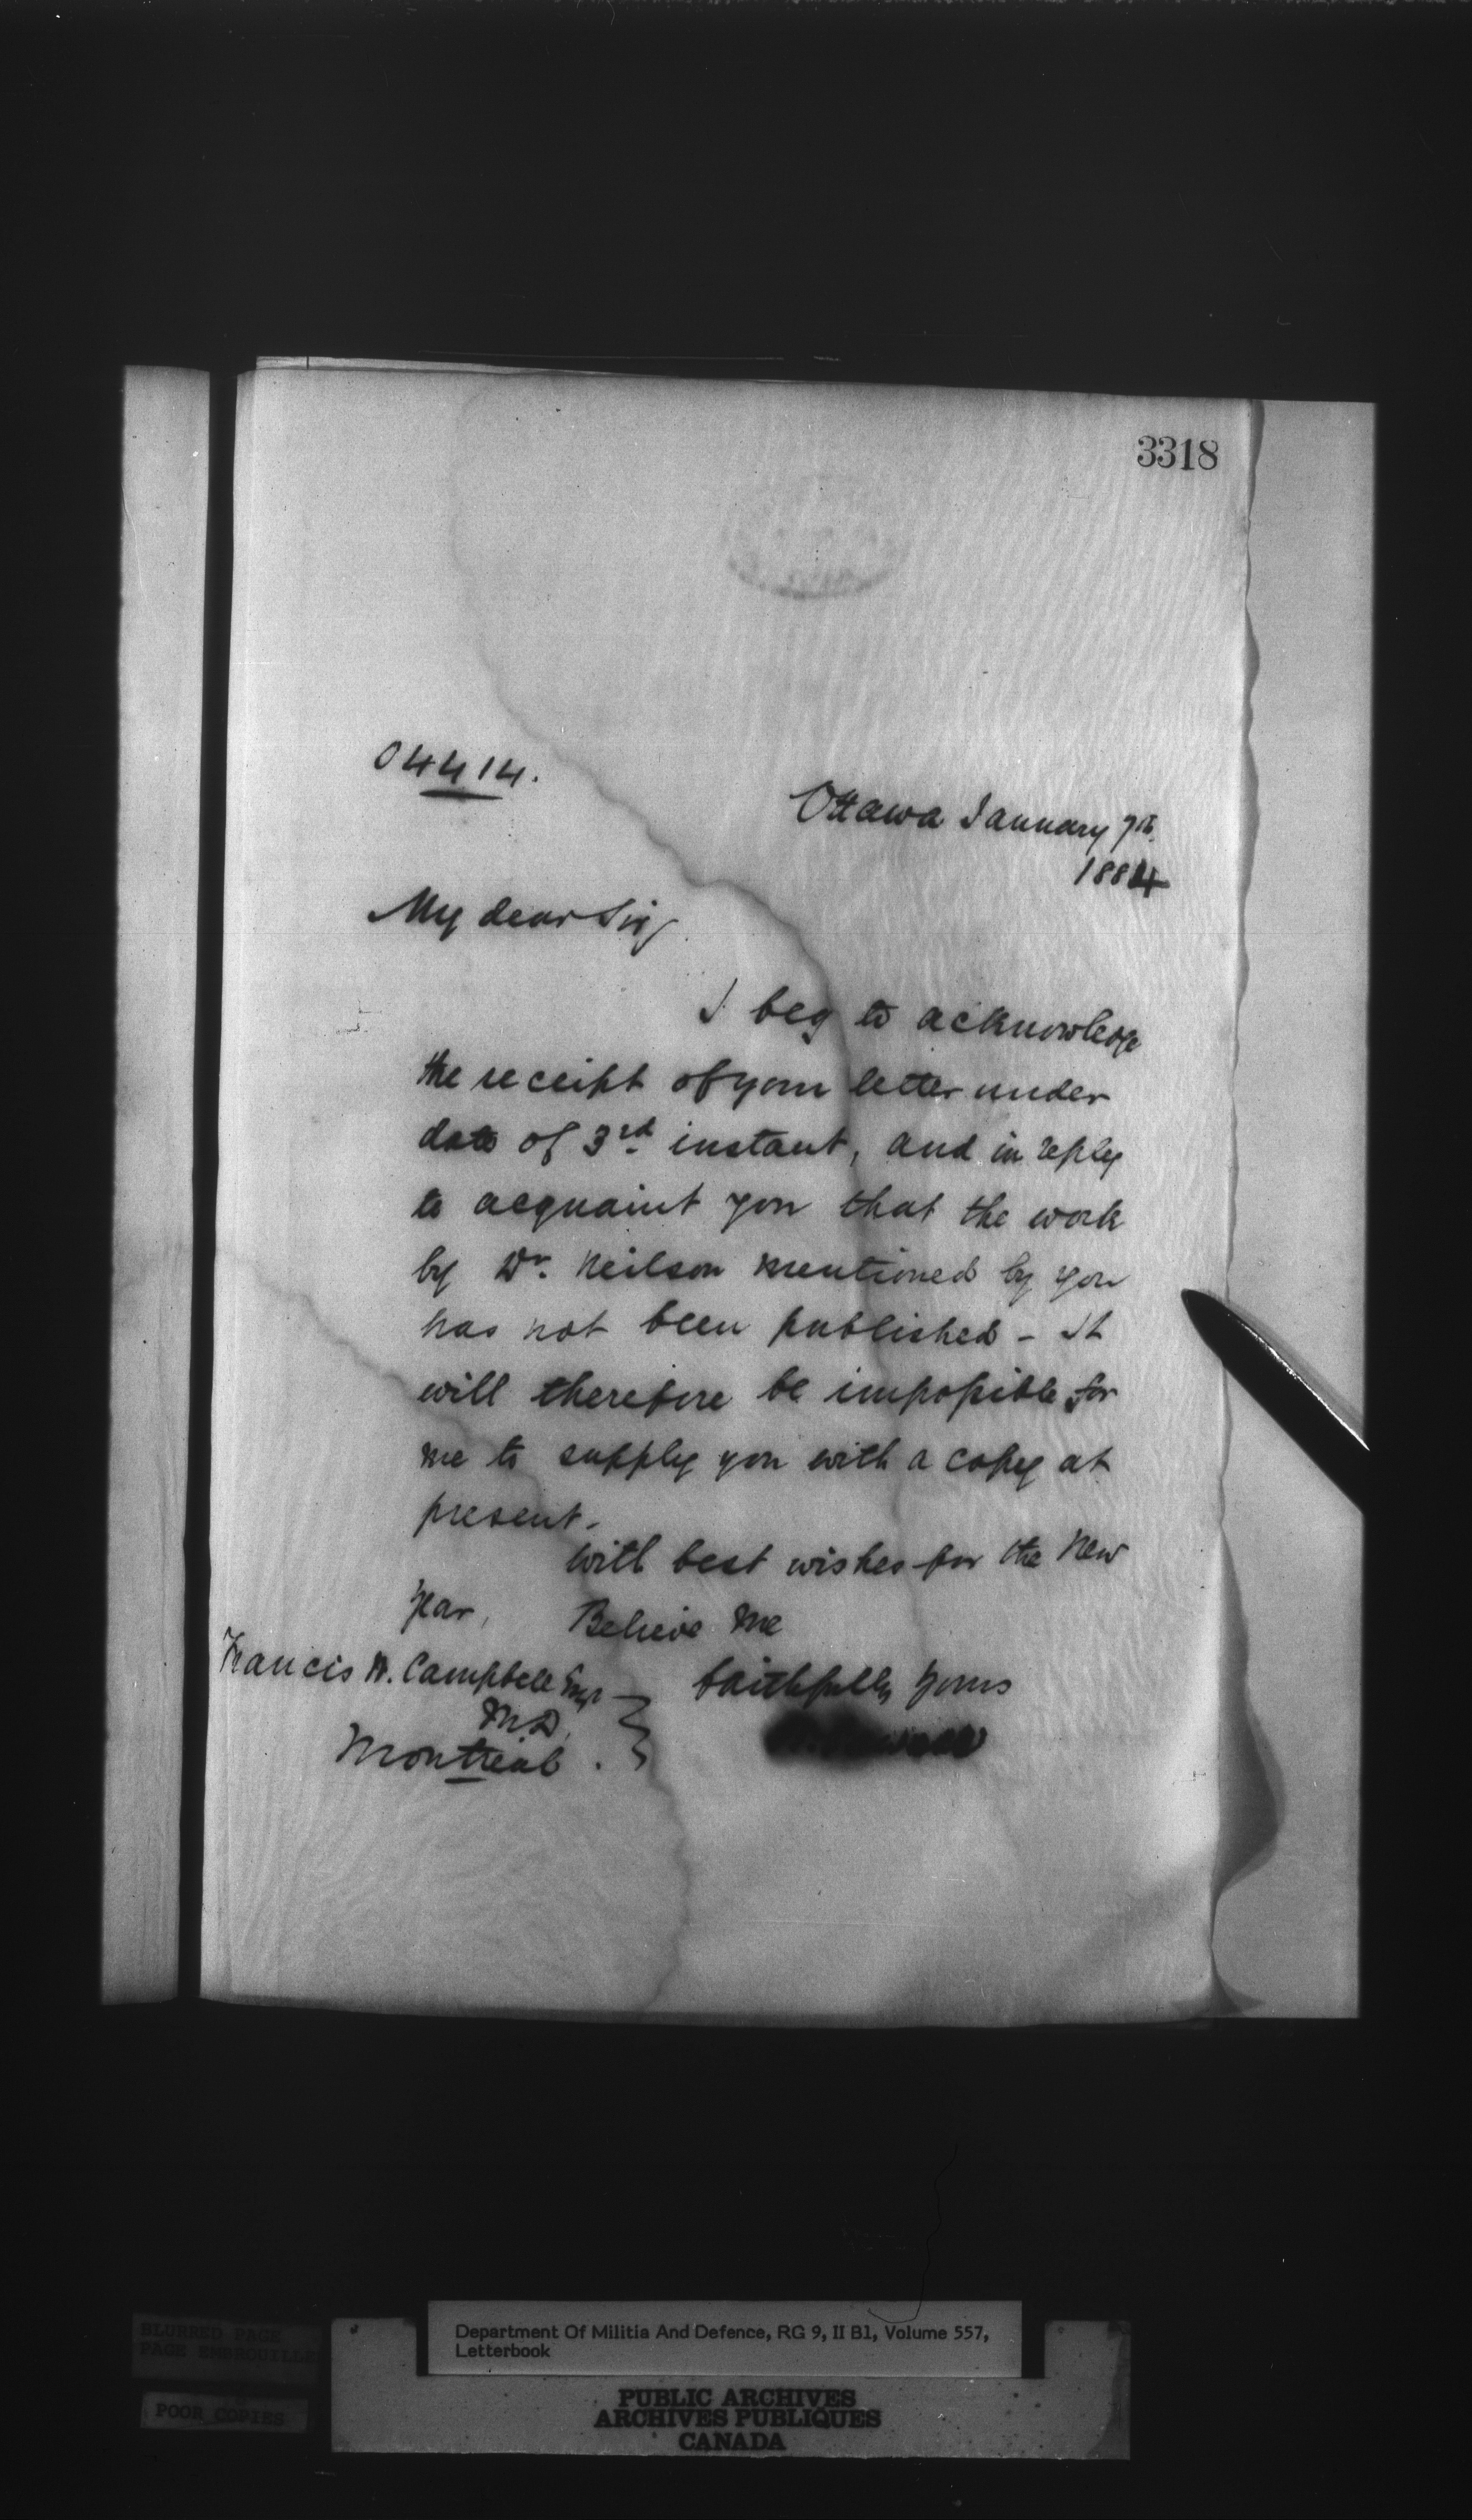 3318
04414.
Ottawa January 7th.
1884
My dear Sir,
I beg to acknowledge
the receipt of your letter under
date of 3rd instant, and in reply
to acquaint you that the work
by Dr. Neilson mentioned by you
has not been published - It
will therefore be impossible for
me to supply you with a copy at
present.
With best wishes for the New
Year, Believe me
Faithfully Yours
Francis W. Campbell Esqr
M.D.
Montreal.
BLURRED PAGE
PAGE EMBROUILLEE
POOR COPIES
Department Of Militia And Defence, RG 9, II B1, Volume 557,
Letterbook
PUBLIC ARCHIVES
ARCHIVES PUBLIQUES
CANADA